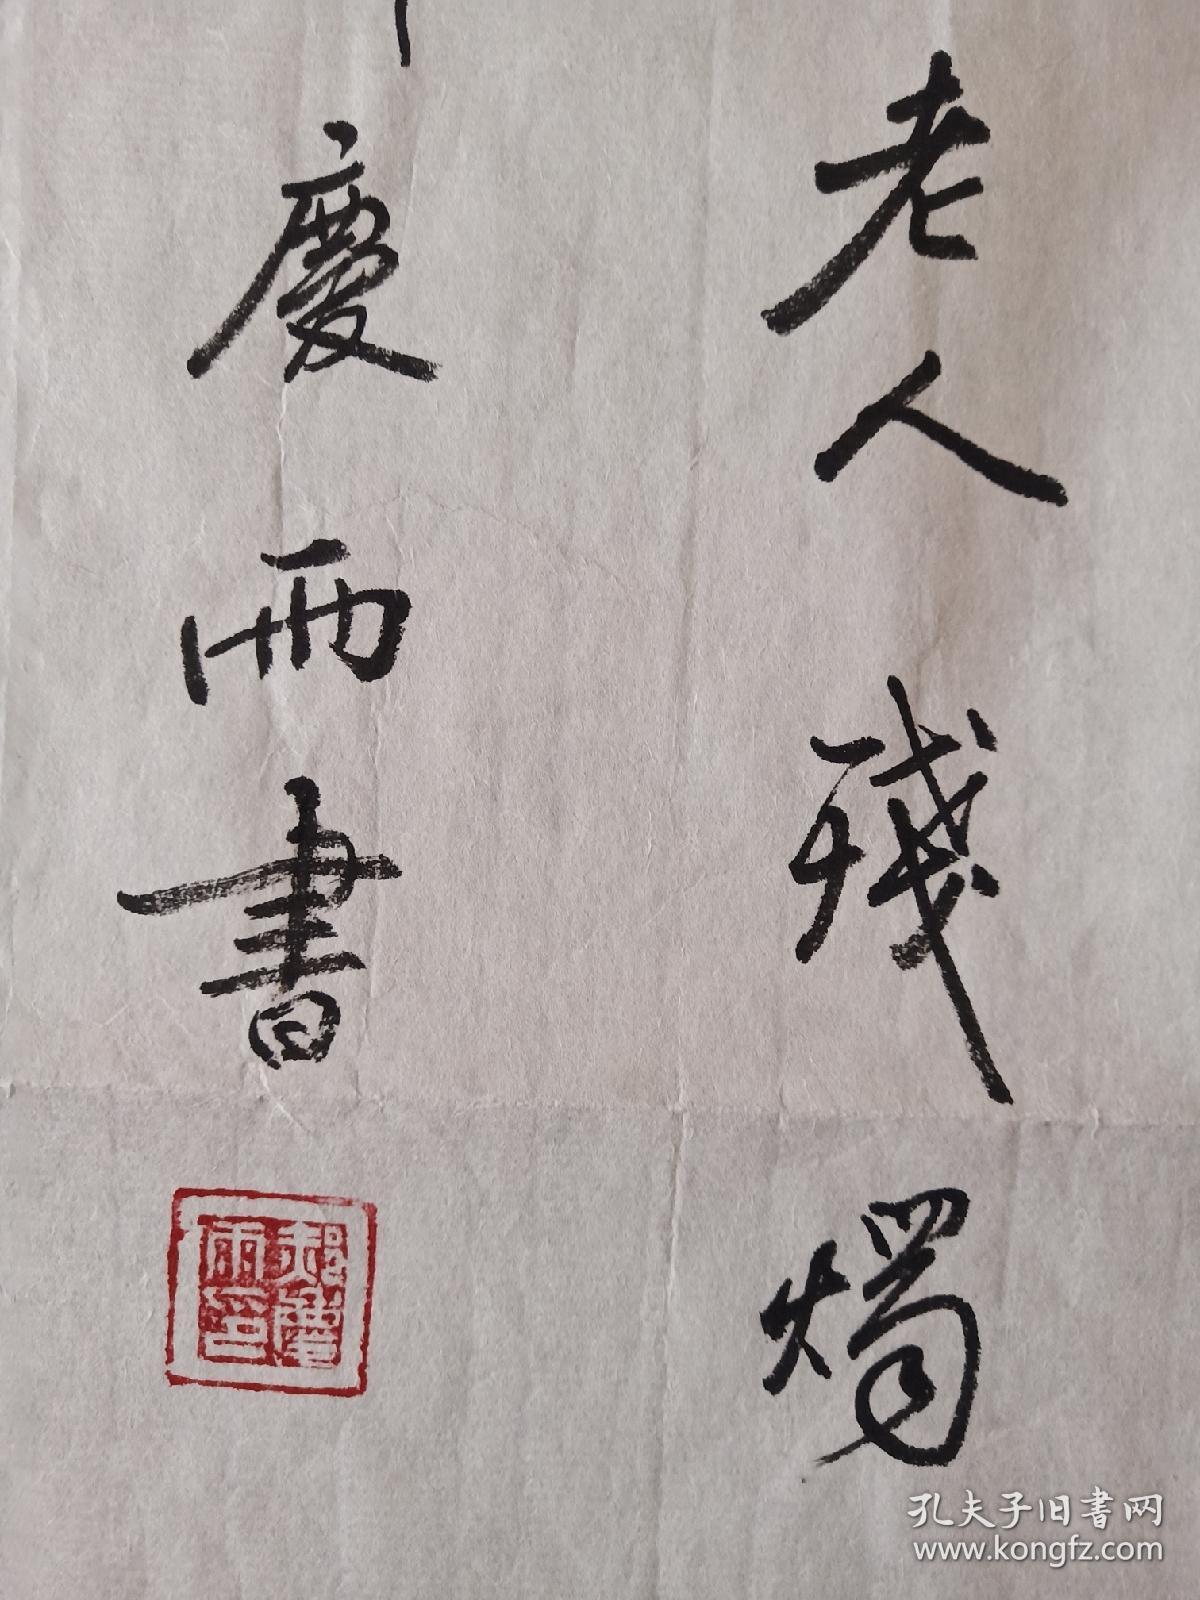 老人殘燭
慶雨書
孔夫子旧書网
www.kongfz.com